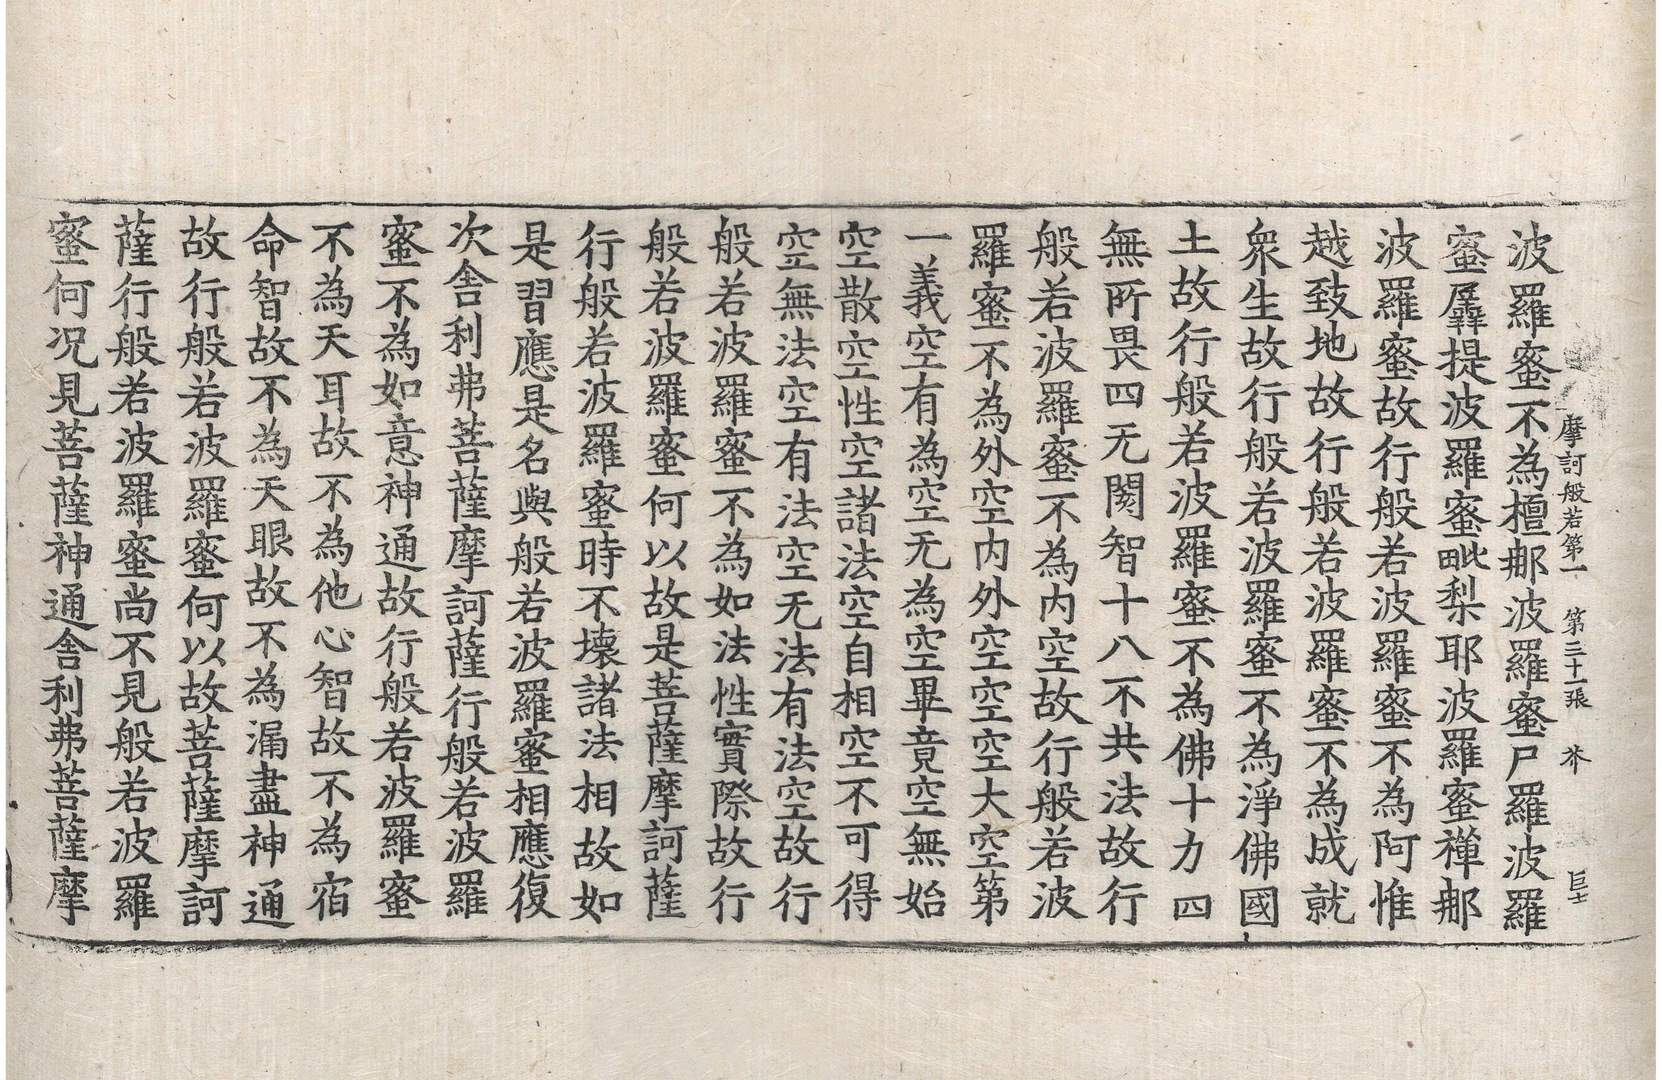 摩訶般若第一　第三十一張　芥　巨士
波羅蜜不為檀那波羅蜜尸羅波羅
蜜羼提波羅蜜毗梨耶波羅蜜禪那
波羅蜜故行般若波羅蜜不為阿惟
越致地故行般若波羅蜜不為成就
衆生故行般若波羅蜜不為淨佛國
土故行般若波羅蜜不為佛十力四
無所畏四无閡智十八不共法故行
般若波羅蜜不為內空故行般若波
羅蜜不為外空內外空空空大空第
一義空有為空无為空畢竟空無始
空散空性空諸法空自相空不可得
空無法空有法空无法有法空故行
般若波羅蜜不為如法性實際故行
般若波羅蜜何以故是菩薩摩訶薩
行般若波羅蜜時不壞諸法相故如
是習應是名與般若波羅蜜相應復
次舍利弗菩薩摩訶薩行般若波羅
蜜不為如意神通故行般若波羅蜜
不為天耳故不為他心智故不為宿
命智故不為天眼故不為漏盡神通
故行般若波羅蜜何以故菩薩摩訶
薩行般若波羅蜜尚不見般若波羅
蜜何況見菩薩神通舍利弗菩薩摩